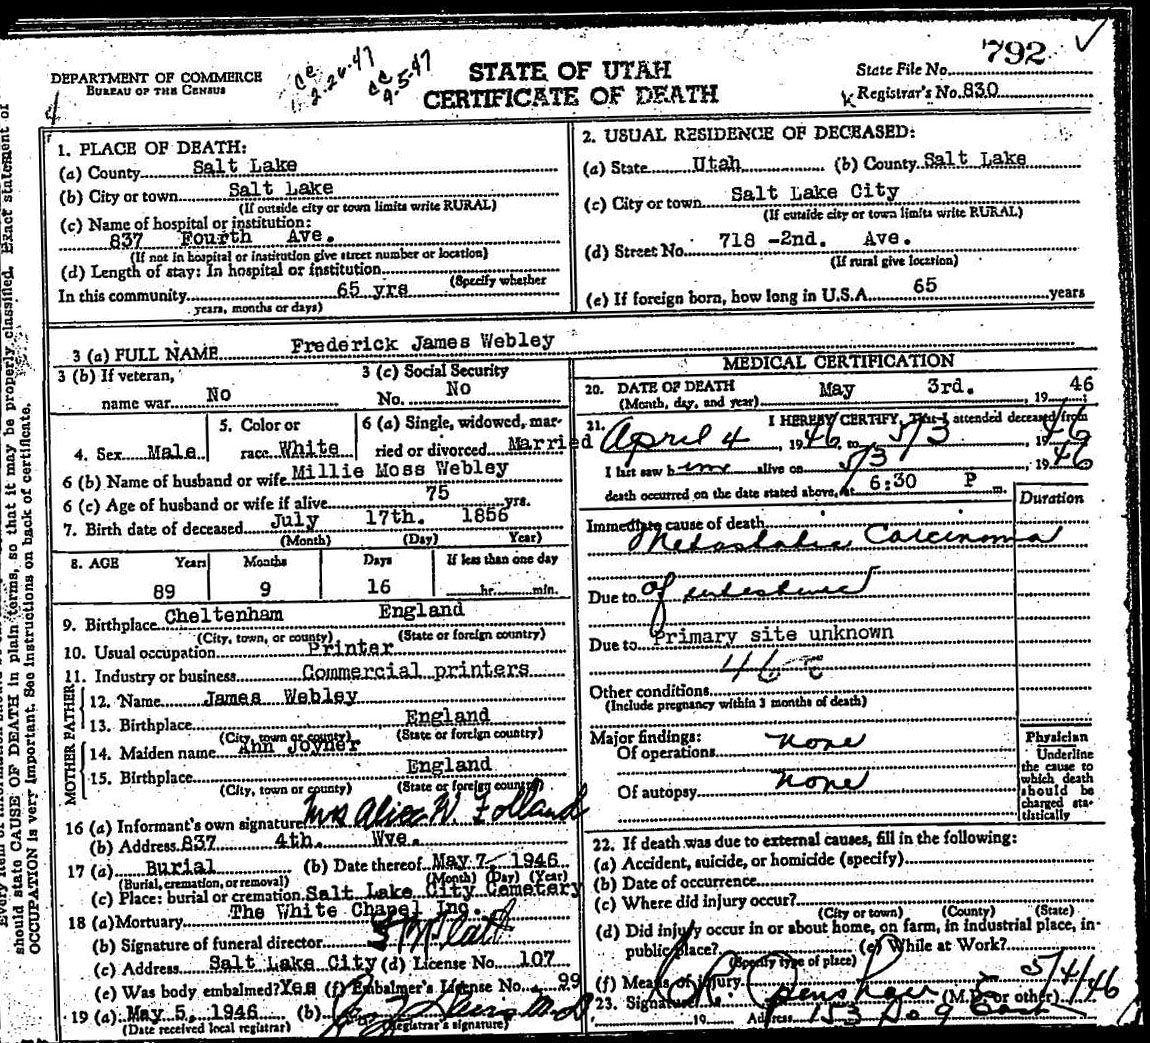 792 ✓
DEPARTMENT OF COMMERCE
BUREAU OF THE CENSUS
cc 2-26-47
cc 9-5-47
STATE OF UTAH
CERTIFICATE OF DEATH
State File No.
Registrar's No. 830
1. PLACE OF DEATH:
(a) County Salt Lake
(b) City or town Salt Lake
(If outside city or town limits write RURAL)
(c) Name of hospital or institution:
837 Fourth Ave.
(If not in hospital or institution give street number or location)
(d) Length of stay: In hospital or institution
(Specify whether
In this community 65 yrs
years, months or days)
2. USUAL RESIDENCE OF DECEASED:
(a) State Utah (b) County Salt Lake
(c) City or town Salt Lake City
(If outside city or town limits write RURAL)
(d) Street No. 718 -2nd. Ave.
(If rural give location)
(e) If foreign born, how long in U.S.A. 65 years
3 (a) FULL NAME Frederick James Webley
3 (b) If veteran, name war No
3 (c) Social Security No. No
4. Sex Male
5. Color or race White
6 (a) Single, widowed, married or divorced Married
6 (b) Name of husband or wife Millie Moss Webley
6 (c) Age of husband or wife if alive 75 yrs.
7. Birth date of deceased July 17th. 1856
(Month) (Day) Year)
8. AGE Years Months Days If less than one day
89 9 16 hr. min.
9. Birthplace Cheltenham England
(City, town, or county) (State or foreign country)
10. Usual occupation Printer
11. Industry or business Commercial printers
FATHER
12. Name James Webley
13. Birthplace England
(City, town or county) (State or foreign country)
MOTHER
14. Maiden name Ann Joyner
15. Birthplace England
(City, town or county) (State or foreign country)
16 (a) Informant's own signature Mrs Alice W. Folland
(b) Address 837 4th. Wve.
17 (a) Burial (b) Date thereof May 7, 1946
(Burial, cremation, or removal) (Month) (Day) (Year)
(c) Place: burial or cremation Salt Lake City Cemetery
18 (a) Mortuary The White Chapel Inc.
(b) Signature of funeral director
(c) Address Salt Lake City (d) License No. 107
(e) Was body embalmed? Yes (f) Embalmer's License No. 99
19 (a) May 5, 1946 (b)
(Date received local registrar) (Registrar's signature)
MEDICAL CERTIFICATION
20. DATE OF DEATH May 3rd. 1946
(Month, day, and year)
21. I HEREBY CERTIFY, That I attended deceased from
April 4, 1946 to 5/3, 1946
I last saw him alive on 5/3, 1946
death occurred on the date stated above, at 6:30 P m.
Duration
Immediate cause of death
Metastatic Carcinoma
Due to of intestine
Due to Primary site unknown
46
Other conditions
(Include pregnancy within 3 months of death)
Major findings:
Of operations none
Of autopsy none
Physician
Underline the cause to which death should be charged statistically
22. If death was due to external causes, fill in the following:
(a) Accident, suicide, or homicide (specify)
(b) Date of occurrence
(c) Where did injury occur?
(City or town) (County) (State)
(d) Did injury occur in or about home, on farm, in industrial place, in public place? (e) While at Work?
(Specify type of place)
(f) Means of injury
23. Signature Openshaw (M.D. or other) 5/4/46
19 Address 153 So 9 East
should state CAUSE OF DEATH in plain terms, so that it may be properly classified. Exact statement of
OCCUPATION is very important. See instructions on back of certificate.